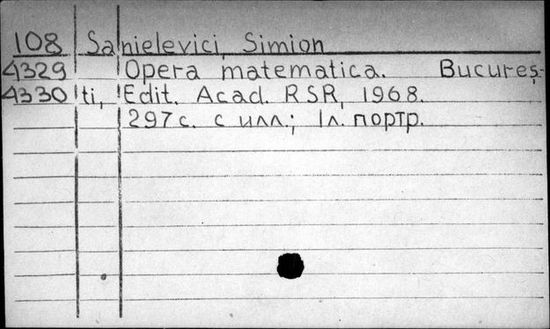 108 Sanielevici, Simion
4329 Opera matematica. Bucureş-
4330 ti, Edit. Acad. RSR, 1968.
297с. с илл; 1л. портр.